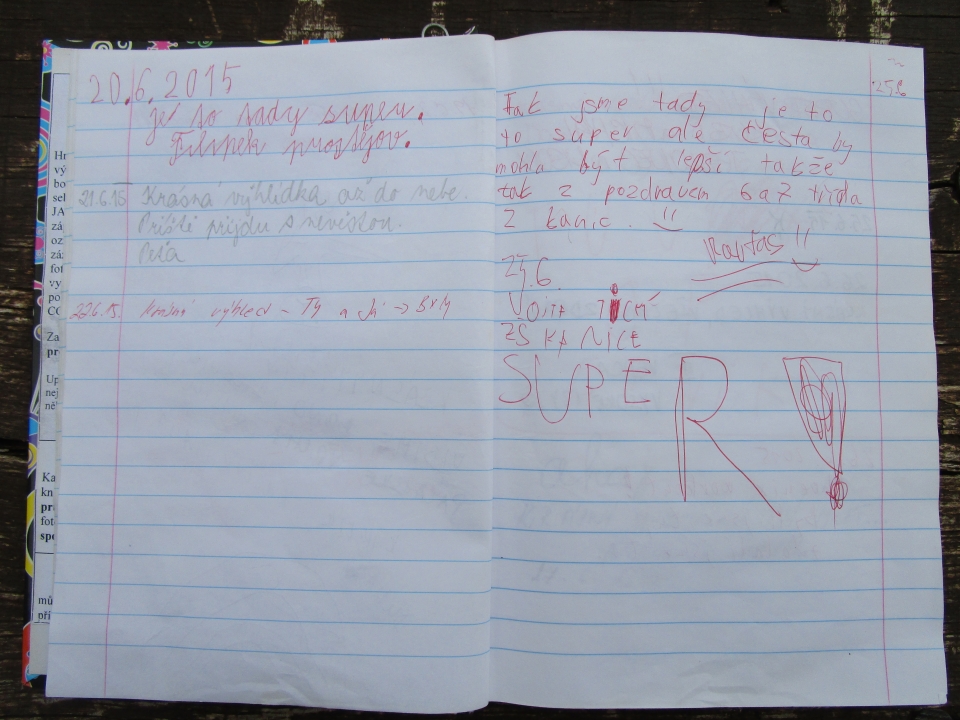 20.6.2015
je to tady super.
Filipek prostějov.
21.6.15 Krásná vyhlídka až do nebe.
Příště přijdu s nevěstou.
Péťa
22.6.15. Krásný výhled - Ty a Já →
25.6.
Tak jsme tady je to
to super ale česta by
mohla být lepší takže
tak z pozdravem 6 a 7 třída
z kanic.
25.6.
Vojta
ZŠ KANICE
SUPER!
Hr
vý
bo
sel
JA
zá
oz
záz
fot
vy
po
CC
Za
pr
Up
nej
ně
Ka
kn
pr
fot
spo
mů
pří